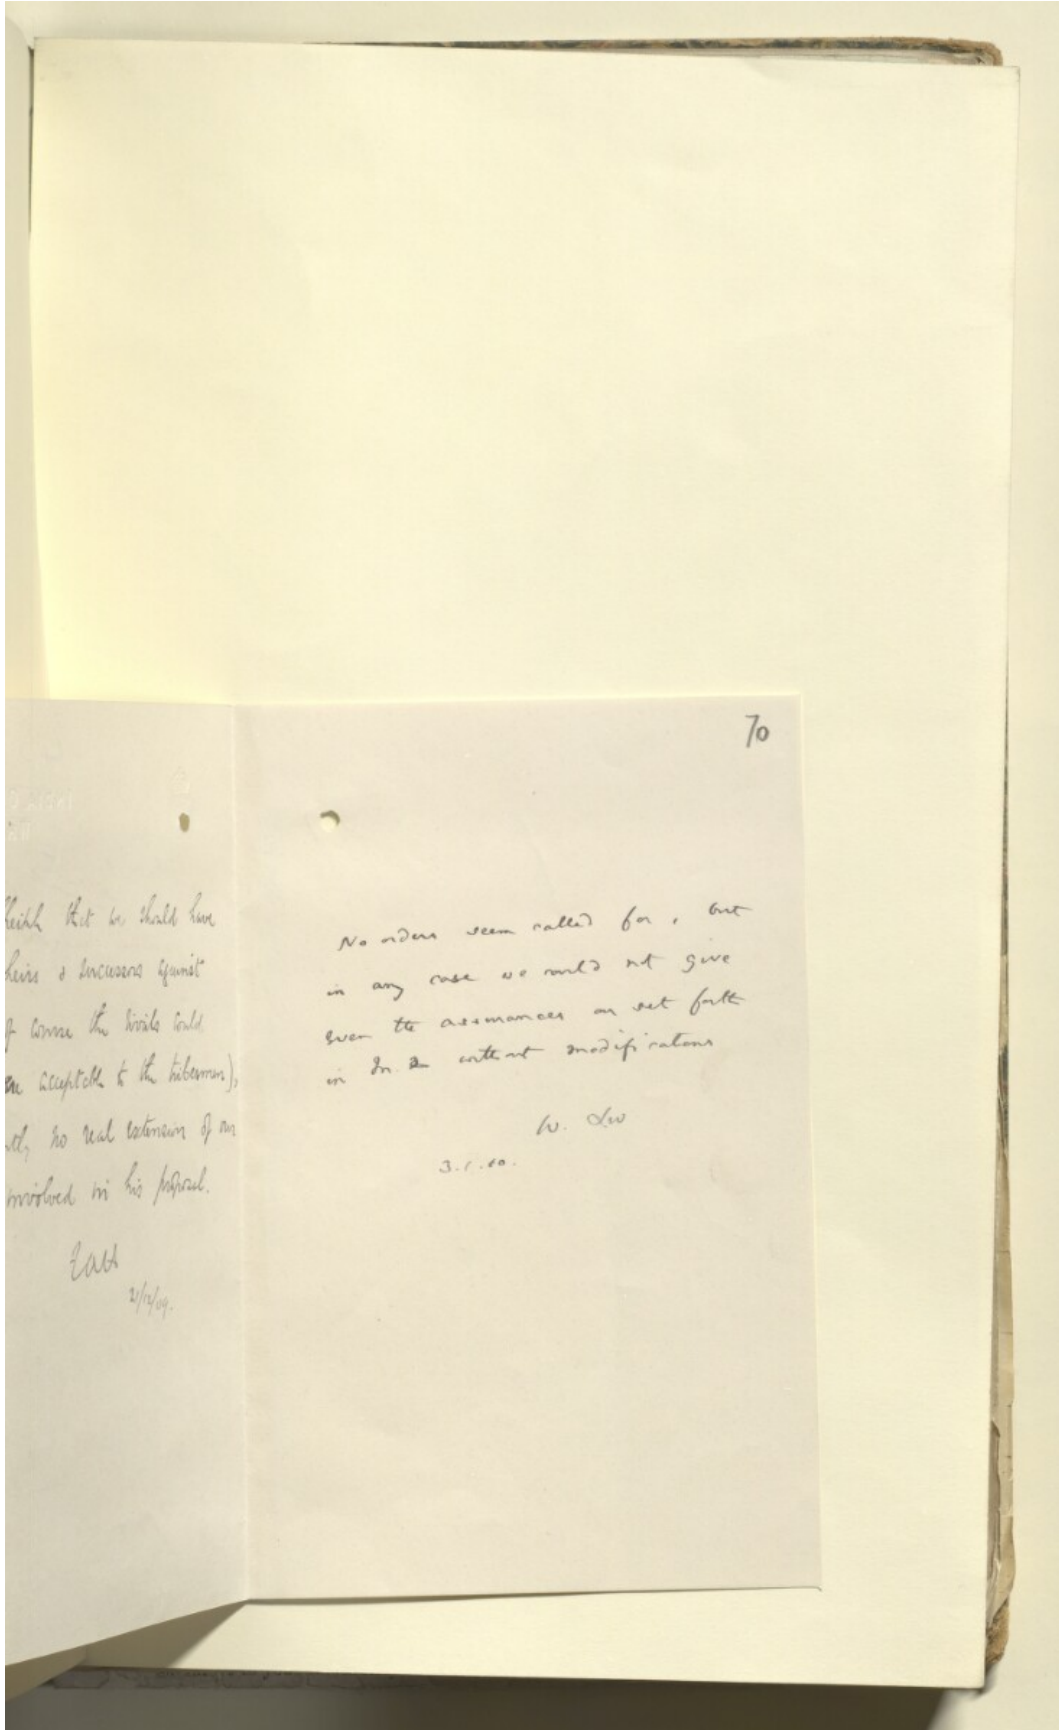 70
heikh that we should have
heirs & successors against
of course the rivals could
acceptable to the tribesmen),
no real extension of our
involved in his proposal.
21/12/09.
No orders seem called for, but
in any case we could not give
even the assurances as set forth
in without modifications
W. Lw
3.1.10.